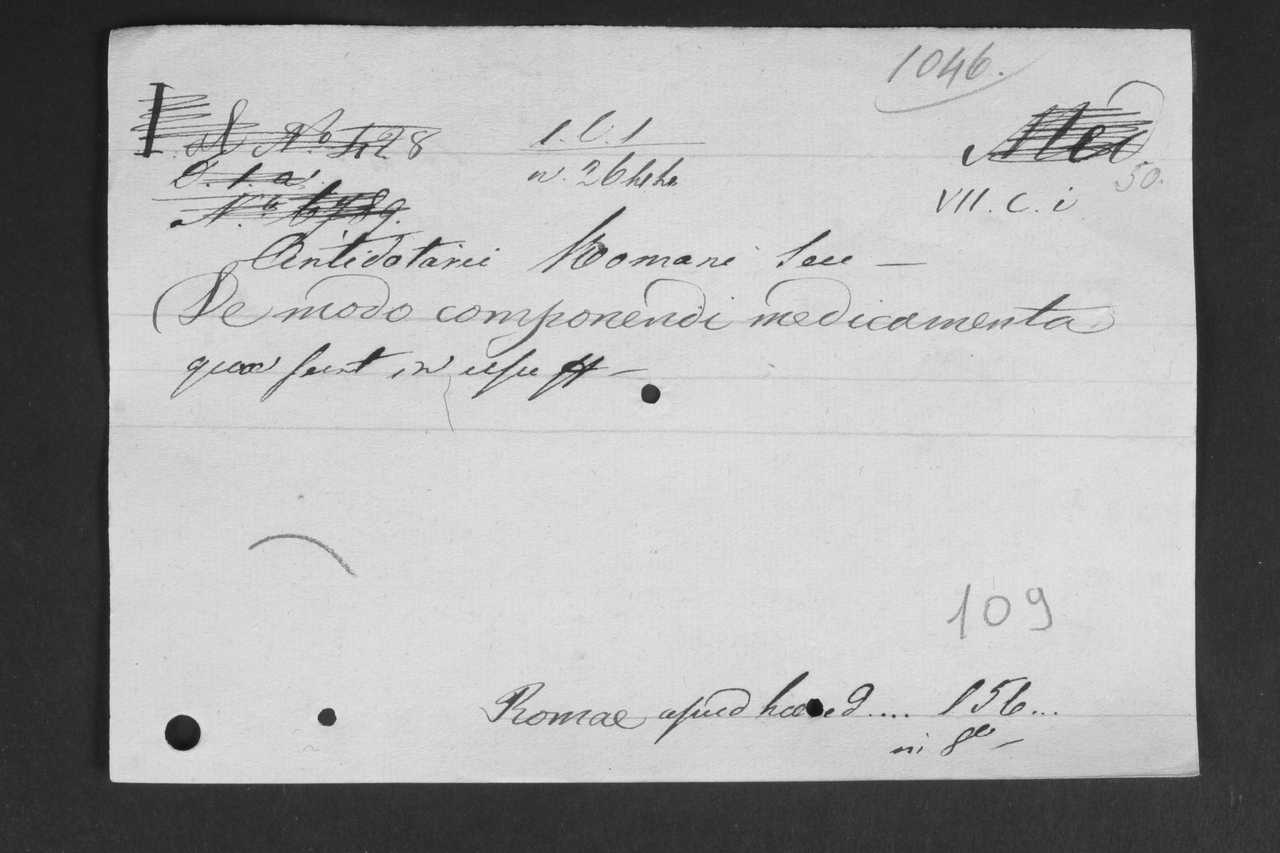 1046.
N.º 428 1. C. 1
O. 1. a. n. 26
N.º 6789.
50.
VII. C. i
Antidotarii Romani Seu —
De modo componendi medicamenta
quæ sunt in usu —
109
Romae apud hæred .... 156...
in 8º —